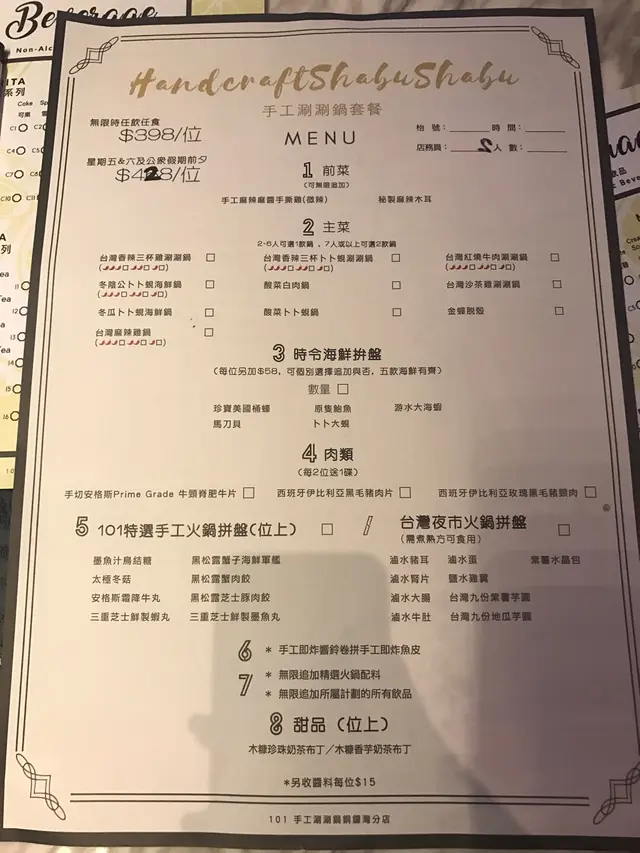 Beverage
Non-Alc
HandcraftShabuShabu
手工涮涮鍋套餐
無限時任飲任食
$398/位
MENU
枱 號：
時 間：
店務員：
2人 數：
星期五&六及公眾假期前夕
$428/位
1 前菜
(可無限追加)
手工麻辣麻醬手撕雞(微辣)
秘製麻辣木耳
2 主菜
2-6人可選1款鍋 、7人或以上可選2款鍋
台灣香辣三杯雞涮涮鍋
台灣香辣三杯卜卜蜆涮涮鍋
台灣紅燒牛肉涮涮鍋
冬陰公卜卜蜆海鮮鍋
酸菜白肉鍋
台灣沙茶雞涮涮鍋
冬瓜卜卜蜆海鮮鍋
酸菜卜卜蜆鍋
金蟬脱殼
台灣麻辣雞鍋
3 時令海鮮拼盤
(每位另加$58，可個別選擇追加與否，五款海鮮有齊)
數量
珍寶美國桶蠔
原隻鮑魚
游水大海蝦
馬刀貝
卜卜大蜆
4 肉類
(每2位送1碟)
手切安格斯Prime Grade 牛頸脊肥牛片
西班牙伊比利亞黑毛豬肉片
西班牙伊比利亞玫瑰黑毛豬頸肉
5 101特選手工火鍋拼盤(位上)
/ 台灣夜市火鍋拼盤
(需煮熱方可食用)
墨魚汁鳥結糖
黑松露蟹子海鮮軍艦
滷水豬耳
滷水蛋
紫薯水晶包
太極冬菇
黑松露蟹肉餃
滷水腎片
鹽水雞翼
安格斯霜降牛丸
黑松露芝士豚肉餃
滷水大腸
台灣九份紫薯芋圓
三重芝士鮮製蝦丸
三重芝士鮮製墨魚丸
滷水牛肚
台灣九份地瓜芋圓
6 * 手工即炸響鈴卷拼手工即炸魚皮
7 * 無限追加精選火鍋配料
* 無限追加所屬計劃的所有飲品
8 甜品（位上）
木糠珍珠奶茶布丁／木糠香芋奶茶布丁
*另收醬料每位$15
101 手工涮涮鍋銅鑼灣分店